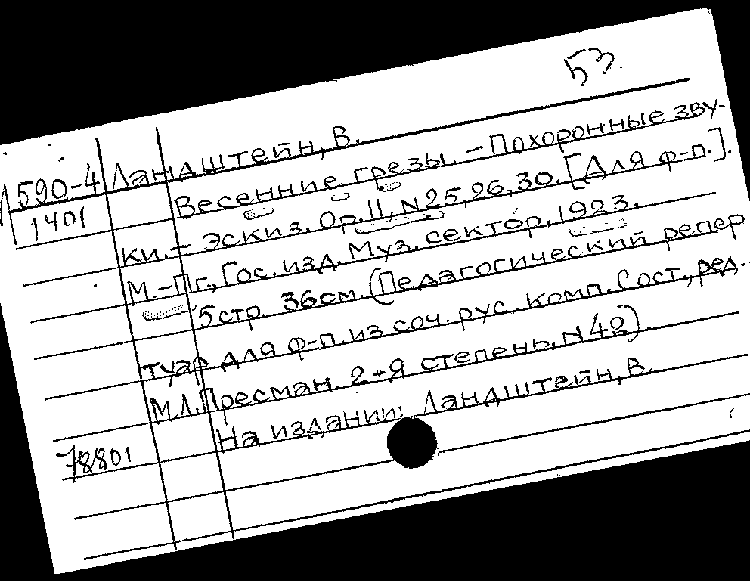 53
590-4 Ландштейн, В.
1401 Весенние грезы. – Похоронные зву-
ки. – Эскиз. Op. 11, N 25, 26, 30. [Для ф-п.].
М.-Пг., Гос. изд. Муз. сектор, 1923.
5 стр. 36 см. (Педагогический репер
туар для ф-п. из соч. рус. комп. Сост., ред.
М.Л. Пресман. 2-я степень. N 42).
На издании: Ландштейн, В.
78801